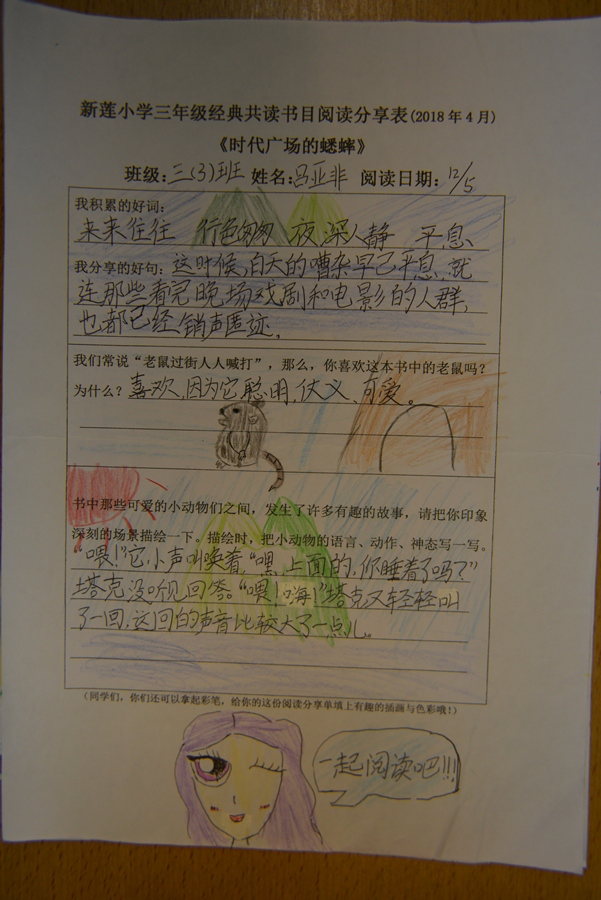 新莲小学三年级经典共读书目阅读分享表(2018年4月)
《时代广场的蟋蟀》
班级:三(3)班 姓名:吕亚非 阅读日期:12/5
我积累的好词:
来来往往 行色匆匆 夜深人静 平息
我分享的好句:这时候,白天的嘈杂早已平息,就
连那些看完晚场戏剧和电影的人群,
也都已经销声匿迹。
我们常说“老鼠过街人人喊打”,那么,你喜欢这本书中的老鼠吗?
为什么?喜欢,因为它聪明,仗义、可爱。
书中那些可爱的小动物们之间,发生了许多有趣的故事,请把你印象
深刻的场景描绘一下。描绘时,把小动物的语言、动作、神态写一写。
“喂!”它小声叫唤着,“嘿,上面的,你睡着了吗?”
塔克没听见回答。“喂!嗨!”塔克又轻轻叫
了一回,这回的声音比较大了一点儿。
(同学们,你们还可以拿起彩笔,给你的这份阅读分享单填上有趣的插画与色彩哦!)
一起阅读吧!!!